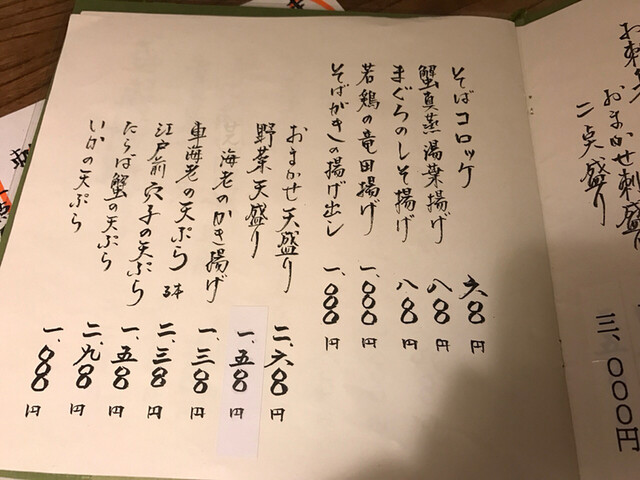 おまかせ刺盛り
二点盛り 三、〇〇〇円
そばコロッケ 六〇〇円
蟹真蒸湯葉揚げ 八〇〇円
まぐろのしそ揚げ 八〇〇円
若鶏の竜田揚げ 一、〇〇〇円
そばがきの揚げ出し 一、〇〇〇円
おまかせ天盛り 二、六〇〇円
野菜天盛り 一、五〇〇円
海老のかき揚げ 一、三〇〇円
車海老の天ぷら 二、三〇〇円
江戸前穴子の天ぷら 一、五〇〇円
たらば蟹の天ぷら 二、九〇〇円
いかの天ぷら 一、〇〇〇円